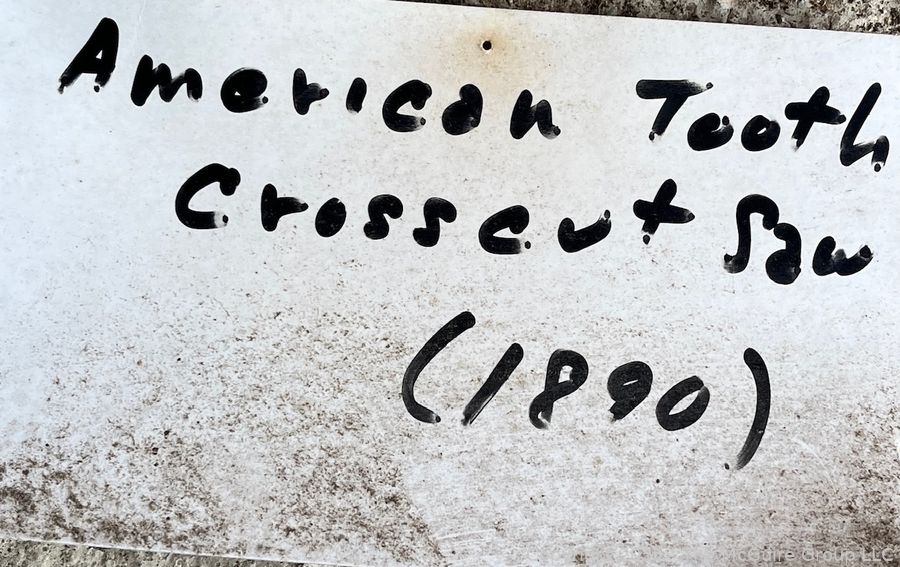 American Tooth
Crosscut Saw
(1890)
McGuire Group LLC